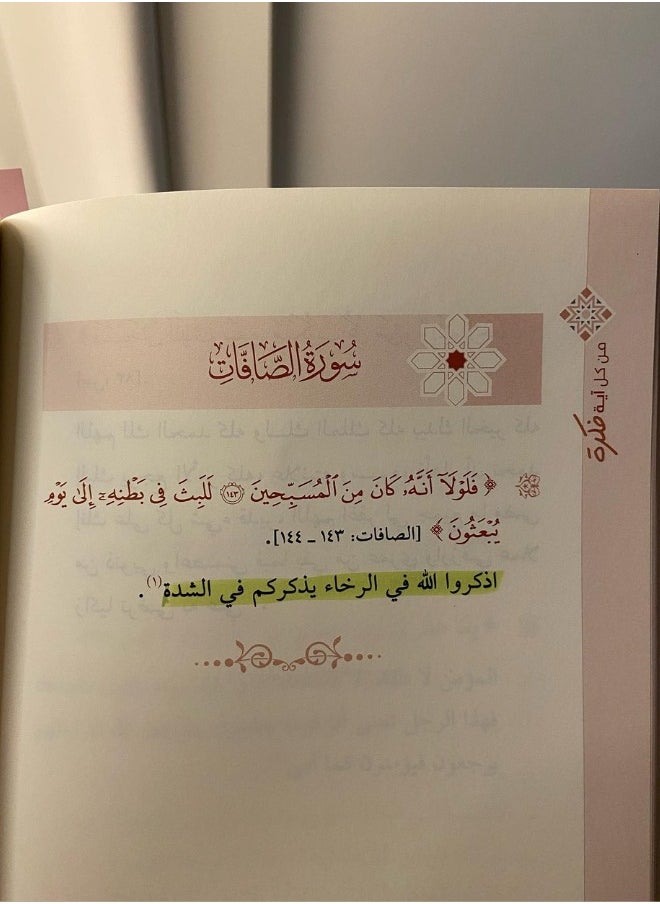 من كل آية فكرة
سُورَةُ الصَّافَّاتِ
﴿ فَلَوْلَآ أَنَّهُۥ كَانَ مِنَ ٱلْمُسَبِّحِينَ ١٤٣ لَلَبِثَ فِى بَطْنِهِۦٓ إِلَىٰ يَوْمِ
يُبْعَثُونَ ﴾ [الصافات: ١٤٣ ـ ١٤٤].
اذكروا الله في الرخاء يذكركم في الشدة(١).